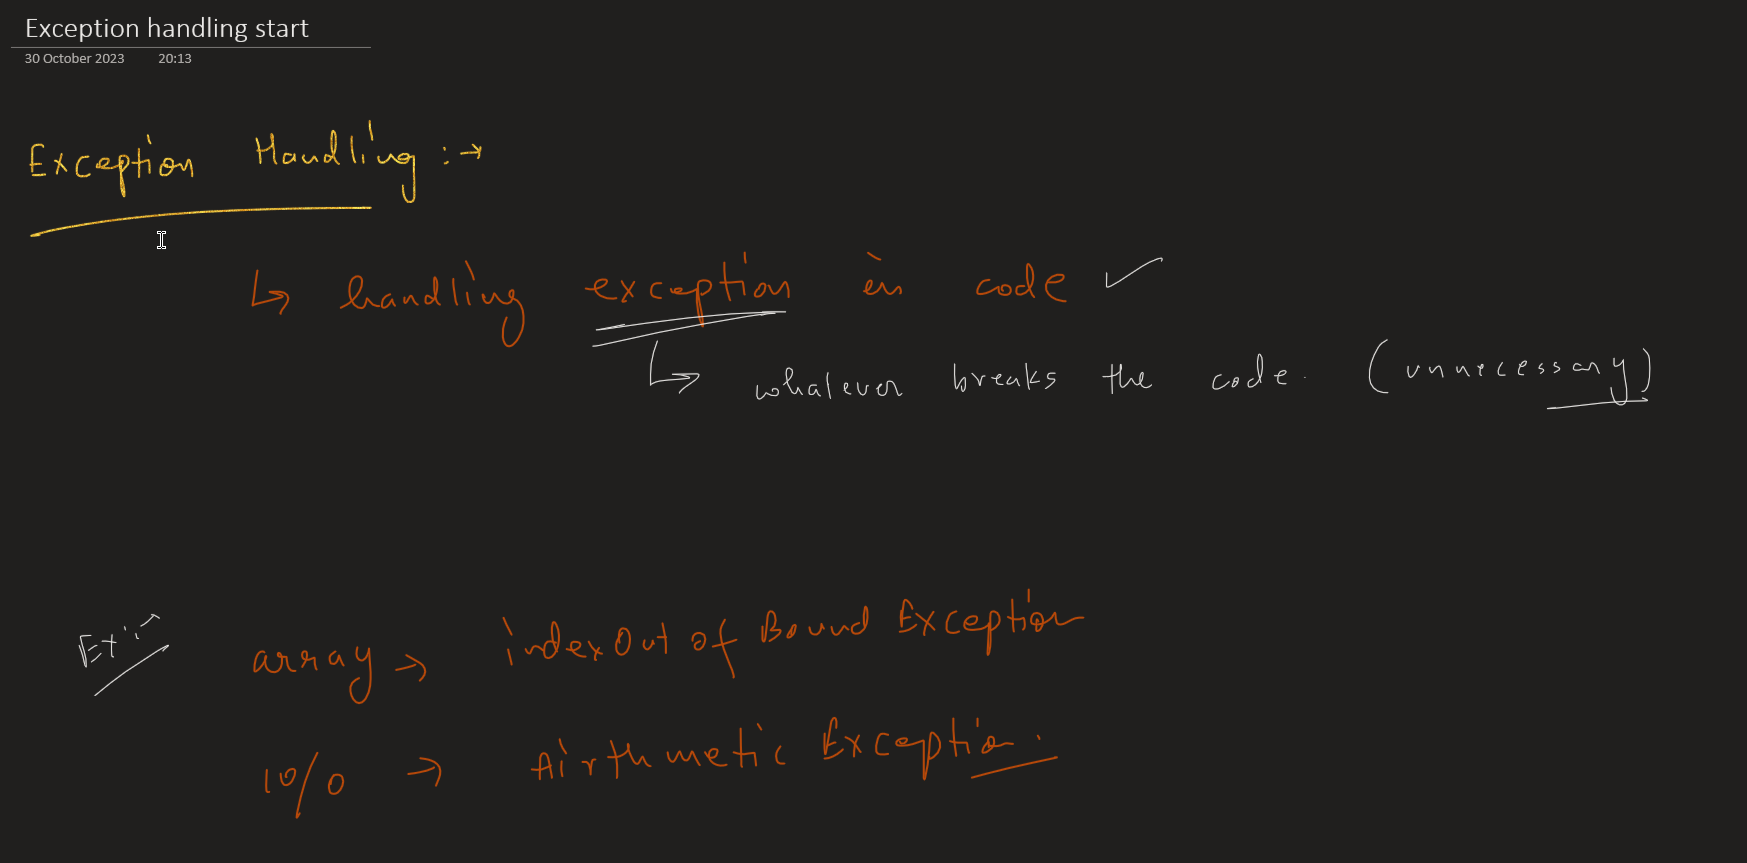 Exception handling start
30 October 2023 20:13
Exception Handling :→
↳ handling exception in code ✓
↳ whatever breaks the code. (unnecessary)
Ex:→
array → indexOut of Bound Exception
10/0 → Airthmetic Exception.